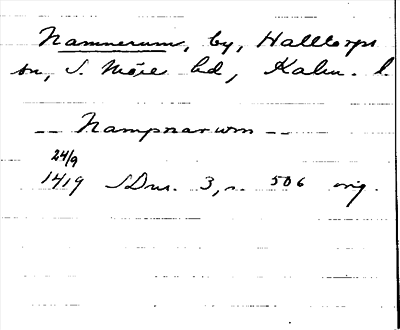 Namnerum, by, Halltorps
sn, S. Möre hd, Kalm. l.
-- Nampnarwm --
24/9
1419 SDns. 3, s. 506 orig.